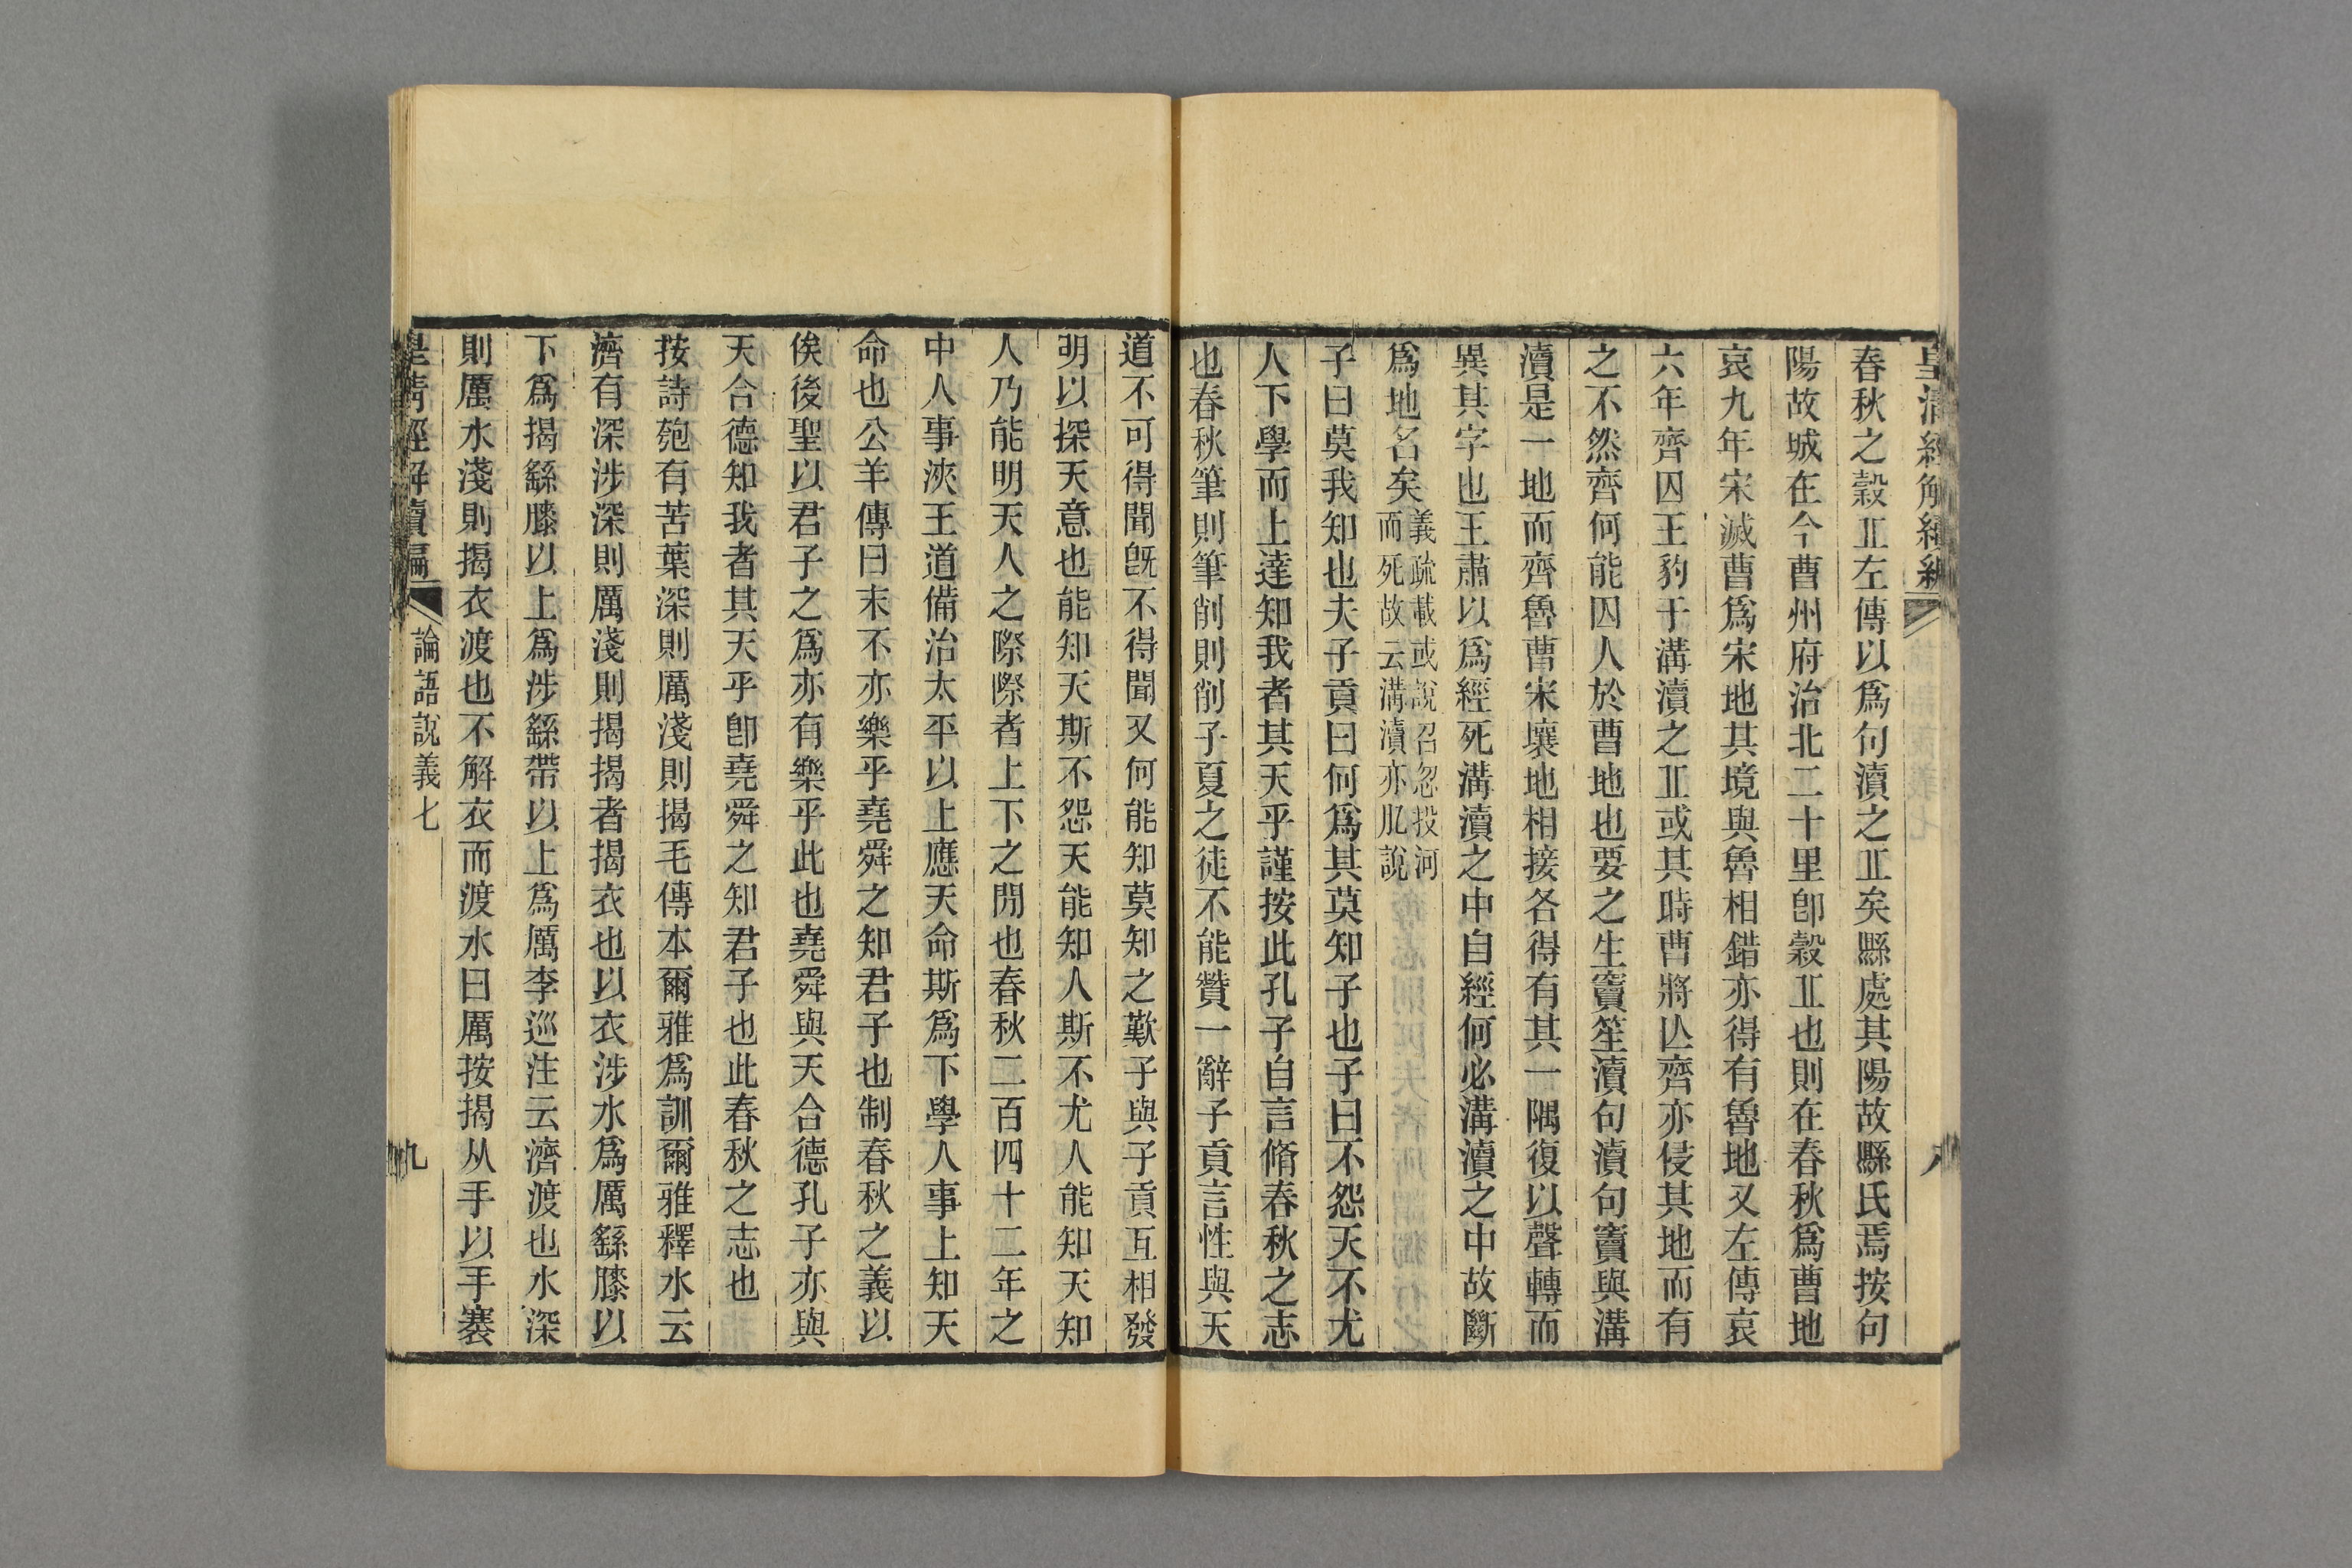 皇清經解續編
八
春秋之穀丠左傳以爲句瀆之丠矣縣處其陽故縣氏焉按句
陽故城在今曹州府治北二十里卽穀丠也則在春秋爲曹地
哀九年宋滅曹爲宋地其境與魯相錯亦得有魯地又左傳哀
六年齊囚王豹于溝瀆之丠或其時曹將亾齊亦侵其地而有
之不然齊何能囚人於曹地也要之生竇笙瀆句瀆句竇與溝
瀆是一地而齊魯曹宋壤地相接各得有其一隅復以聲轉而
異其字也王肅以爲經死溝瀆之中自經何必溝瀆之中故斷
爲地名矣義疏載或說召忽投河
而死故云溝瀆亦肊說
子曰莫我知也夫子貢曰何爲其莫知子也子曰不怨天不尤
人下學而上達知我者其天乎謹按此孔子自言脩春秋之志
也春秋筆則筆削則削子夏之徒不能贊一辭子貢言性與天
道不可得聞旣不得聞又何能知莫知之歎子與子貢互相發
明以探天意也能知天斯不怨天能知人斯不尤人能知天知
人乃能明天人之際際者上下之閒也春秋二百四十二年之
中人事浹王道備治太平以上應天命斯爲下學人事上知天
命也公羊傳曰末不亦樂乎堯舜之知君子也制春秋之義以
俟後聖以君子之爲亦有樂乎此也堯舜與天合德孔子亦與
天合德知我者其天乎卽堯舜之知君子也此春秋之志也
按詩匏有苦葉深則厲淺則揭毛傳本爾雅爲訓爾雅釋水云
濟有深涉深則厲淺則揭揭者揭衣也以衣涉水爲厲繇膝以
下爲揭繇膝以上爲涉繇帶以上爲厲李巡注云濟渡也水深
則厲水淺則揭衣渡也不解衣而渡水曰厲按揭从手以手褰
皇清經解續編
論語說義七
九